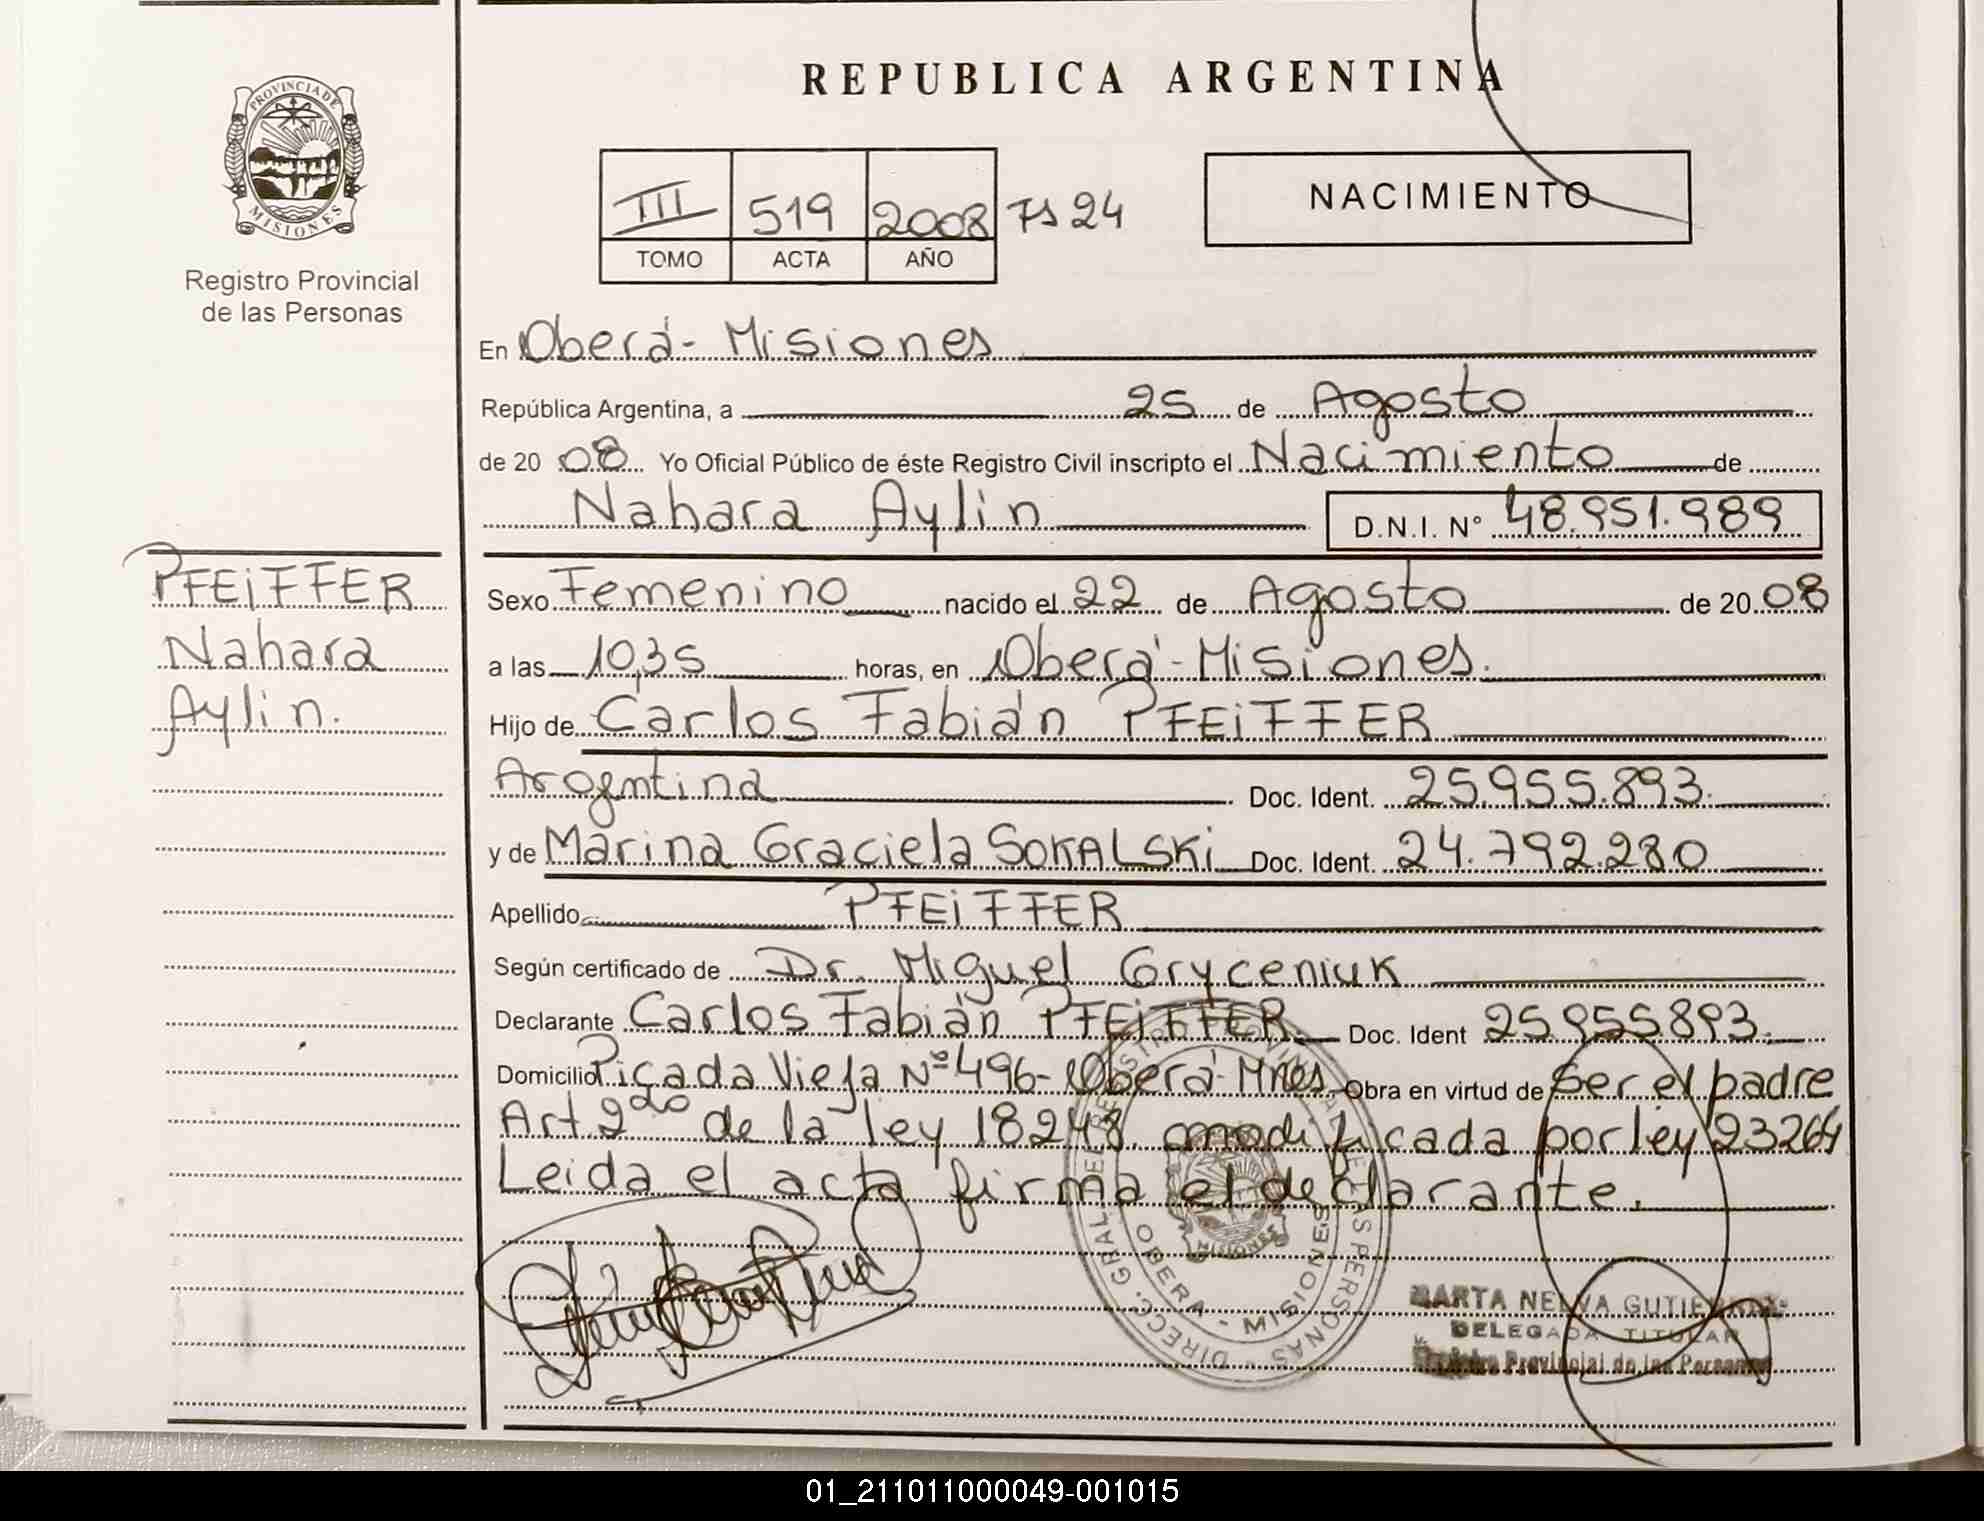 REPUBLICA ARGENTINA
PROVINCIA DE
MISIONES
Registro Provincial
de las Personas
III 519 2008 Fs 24
TOMO ACTA AÑO
NACIMIENTO
En Oberá - Misiones
República Argentina, a 25 de Agosto
de 20 08 Yo Oficial Público de éste Registro Civil inscripto el Nacimiento de
Nahara Aylin D.N.I. N° 48.951.989
PFEiFFER
Nahara
Aylin.
Sexo Femenino nacido el 22 de Agosto de 20 08
a las 10,35 horas, en Oberá - Misiones.
Hijo de Carlos Fabián PFEiFFER
Argentina Doc. Ident. 25.955.893.
y de Marina Graciela SOKALSKi Doc. Ident. 24.792.280
Apellido PFEiFFER
Según certificado de Dr. Miguel Gryceniuk
Declarante Carlos Fabián PFEiFFER. Doc. Ident 25955893.
Domicilio Picada Vieja Nº 496 - Oberá - Mnes Obra en virtud de Ser el padre
Art. 2do de la ley 18248. modificada por ley 23264
Leida el acta firma el declarante.
DIRECC. GRAL. DEL REGISTRO PROVINCIAL DE LAS PERSONAS
OBERA - MISIONES
MISIONES
MARTA NELVA GUTIERREZ
DELEGADA TITULAR
Registro Provincial de las Personas
01_211011000049-001015